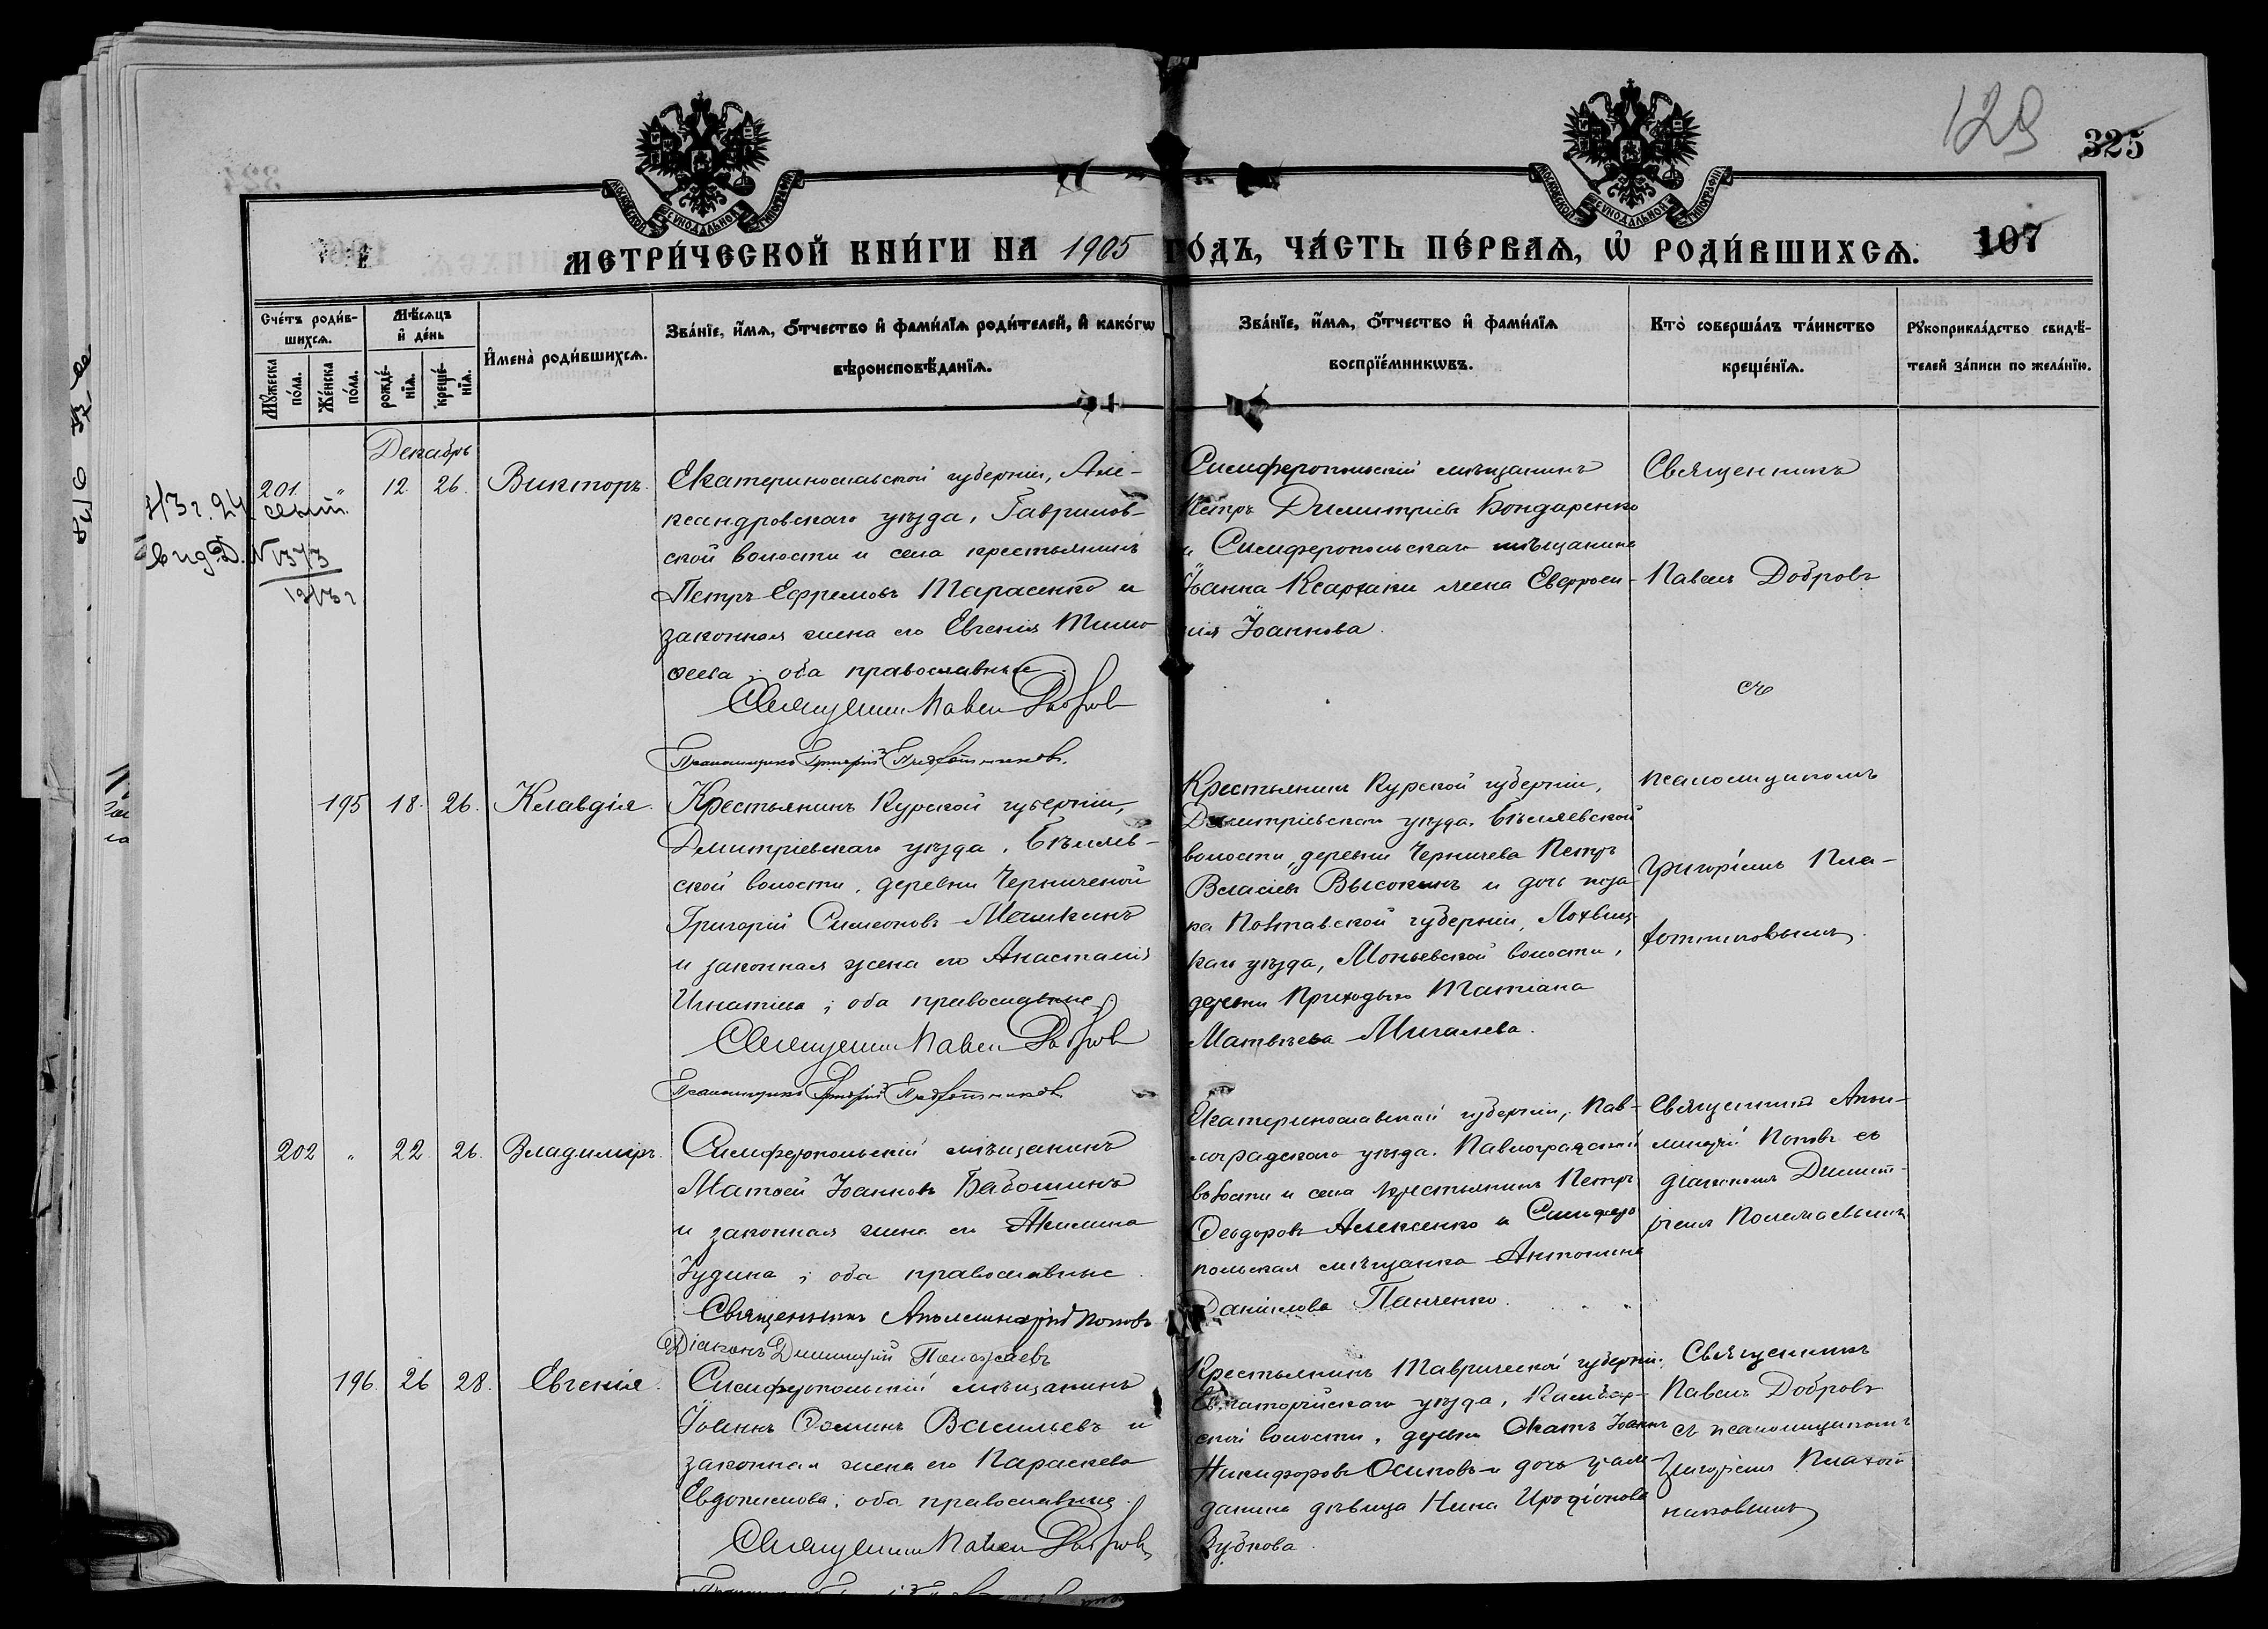 129
325
МОСКОВСКОЙ СѴНОДАЛЬНОЙ ТИПОГРАФІИ
МОСКОВСКОЙ СѴНОДАЛЬНОЙ ТИПОГРАФІИ
МЕТРИ́ЧЕСКОЙ КНИ́ГИ НА 1905 ГО́ДЪ, ЧА́СТЬ ПЕ́РВАѦ, Ѡ҆ РОДИ́ВШИХСѦ.
107
Сче́тъ роди́в-
шихсѧ.
Мꙋ́жеска
по́ла.
Же́нска
по́ла.
Мѣ́сѧцъ
и҆ де́нь
рожде́-
нїѧ.
креще́-
нїѧ.
И҆мена̀ роди́вшихсѧ.
Зва́нїе, и҆́мѧ, ѻ҆́тчество и҆ фами́лїѧ роди́телей, и҆ како́гѡ
вѣроисповѣ́данїѧ.
Зва́нїе, и҆́мѧ, ѻ҆́тчество и҆ фами́лїѧ
воспрїе́мникѡвъ.
Кто̀ соверша́лъ та́инство
креще́нїѧ.
Рꙋкоприкла́дство свидѣ́-
телей за́писи по жела́нїю.
Декабрь
201
"
12.
26.
Викторъ.
Екатеринославской губерніи, Але-
ксандровскаго уѣзда, Гаврилов-
ской волости и села крестьянинъ
Петръ Ефремовъ Тарасенко и
законная жена его Евгенія Тимо-
ѳеева; оба православные
Священникъ Павелъ Добровъ
Псаломщикъ Григорій Плахотниковъ.
Симферопольскій мѣщанинъ
Петръ Димитріевъ Бондаренко
и Симферопольскаго мѣщанина
Іоанна Ксархаки жена Евфроси-
нія Іоаннова.
Священникъ
Павелъ Добровъ
съ
псаломщикомъ
Григоріемъ Пла-
хотниковымъ.
195
18.
26.
Клавдія.
Крестьянинъ Курской губерніи,
Дмитріевскаго уѣзда,
ской волости, деревни Черниченой
Григорій Симеоновъ Машкинъ
и законная жена его Анастасія
Игнатіева; оба православные
Священникъ Павелъ Добровъ
Псаломщикъ Григорій Плахотниковъ
Крестьянинъ Курской губерніи,
Дмитріевскаго уѣзда,
волости, деревни Черничева Петръ
Власіевъ Высокинъ и дочь коза-
ка Полтавской губерніи, Лохвиц-
каго уѣзда, волости,
деревни Приходько Татіана
Матвѣева Мигалева.
202
"
22
26.
Владиміръ.
Симферопольскій мѣщанинъ
Матѳей Іоанновъ Бабошинъ
и законная жена его Акилина
Іудина; оба православные.
Священникъ Аполлинарій Поповъ
Діаконъ Димитрій Полежаевъ
Екатеринославской губерніи, Пав-
лоградскаго уѣзда, Павлоградской
волости и села крестьянинъ Петръ
Ѳеодоровъ Алексенко и Симферо-
польская мѣщанка Антонина
Даніилова Панченко.
Священникъ Апол-
линарій Поповъ съ
діакономъ Димит-
ріемъ Полежаевымъ
196.
26
28.
Евгенія.
Симферопольскій мѣщанинъ
Іоаннъ Ѳоминъ Васильевъ и
законная жена его Параскева
Евдокимова; оба православные.
Священникъ Павелъ Добровъ
Крестьянинъ Таврической губерніи,
Евпаторійскаго уѣзда,
ской волости, деревни Іоаннъ
Никифоровъ Осиповъ и дочь граж-
данина дѣвица Нина Иродіонова
Зубкова.
Священникъ
Павелъ Добровъ
съ псаломщикомъ
Григоріемъ Плахот-
никовымъ